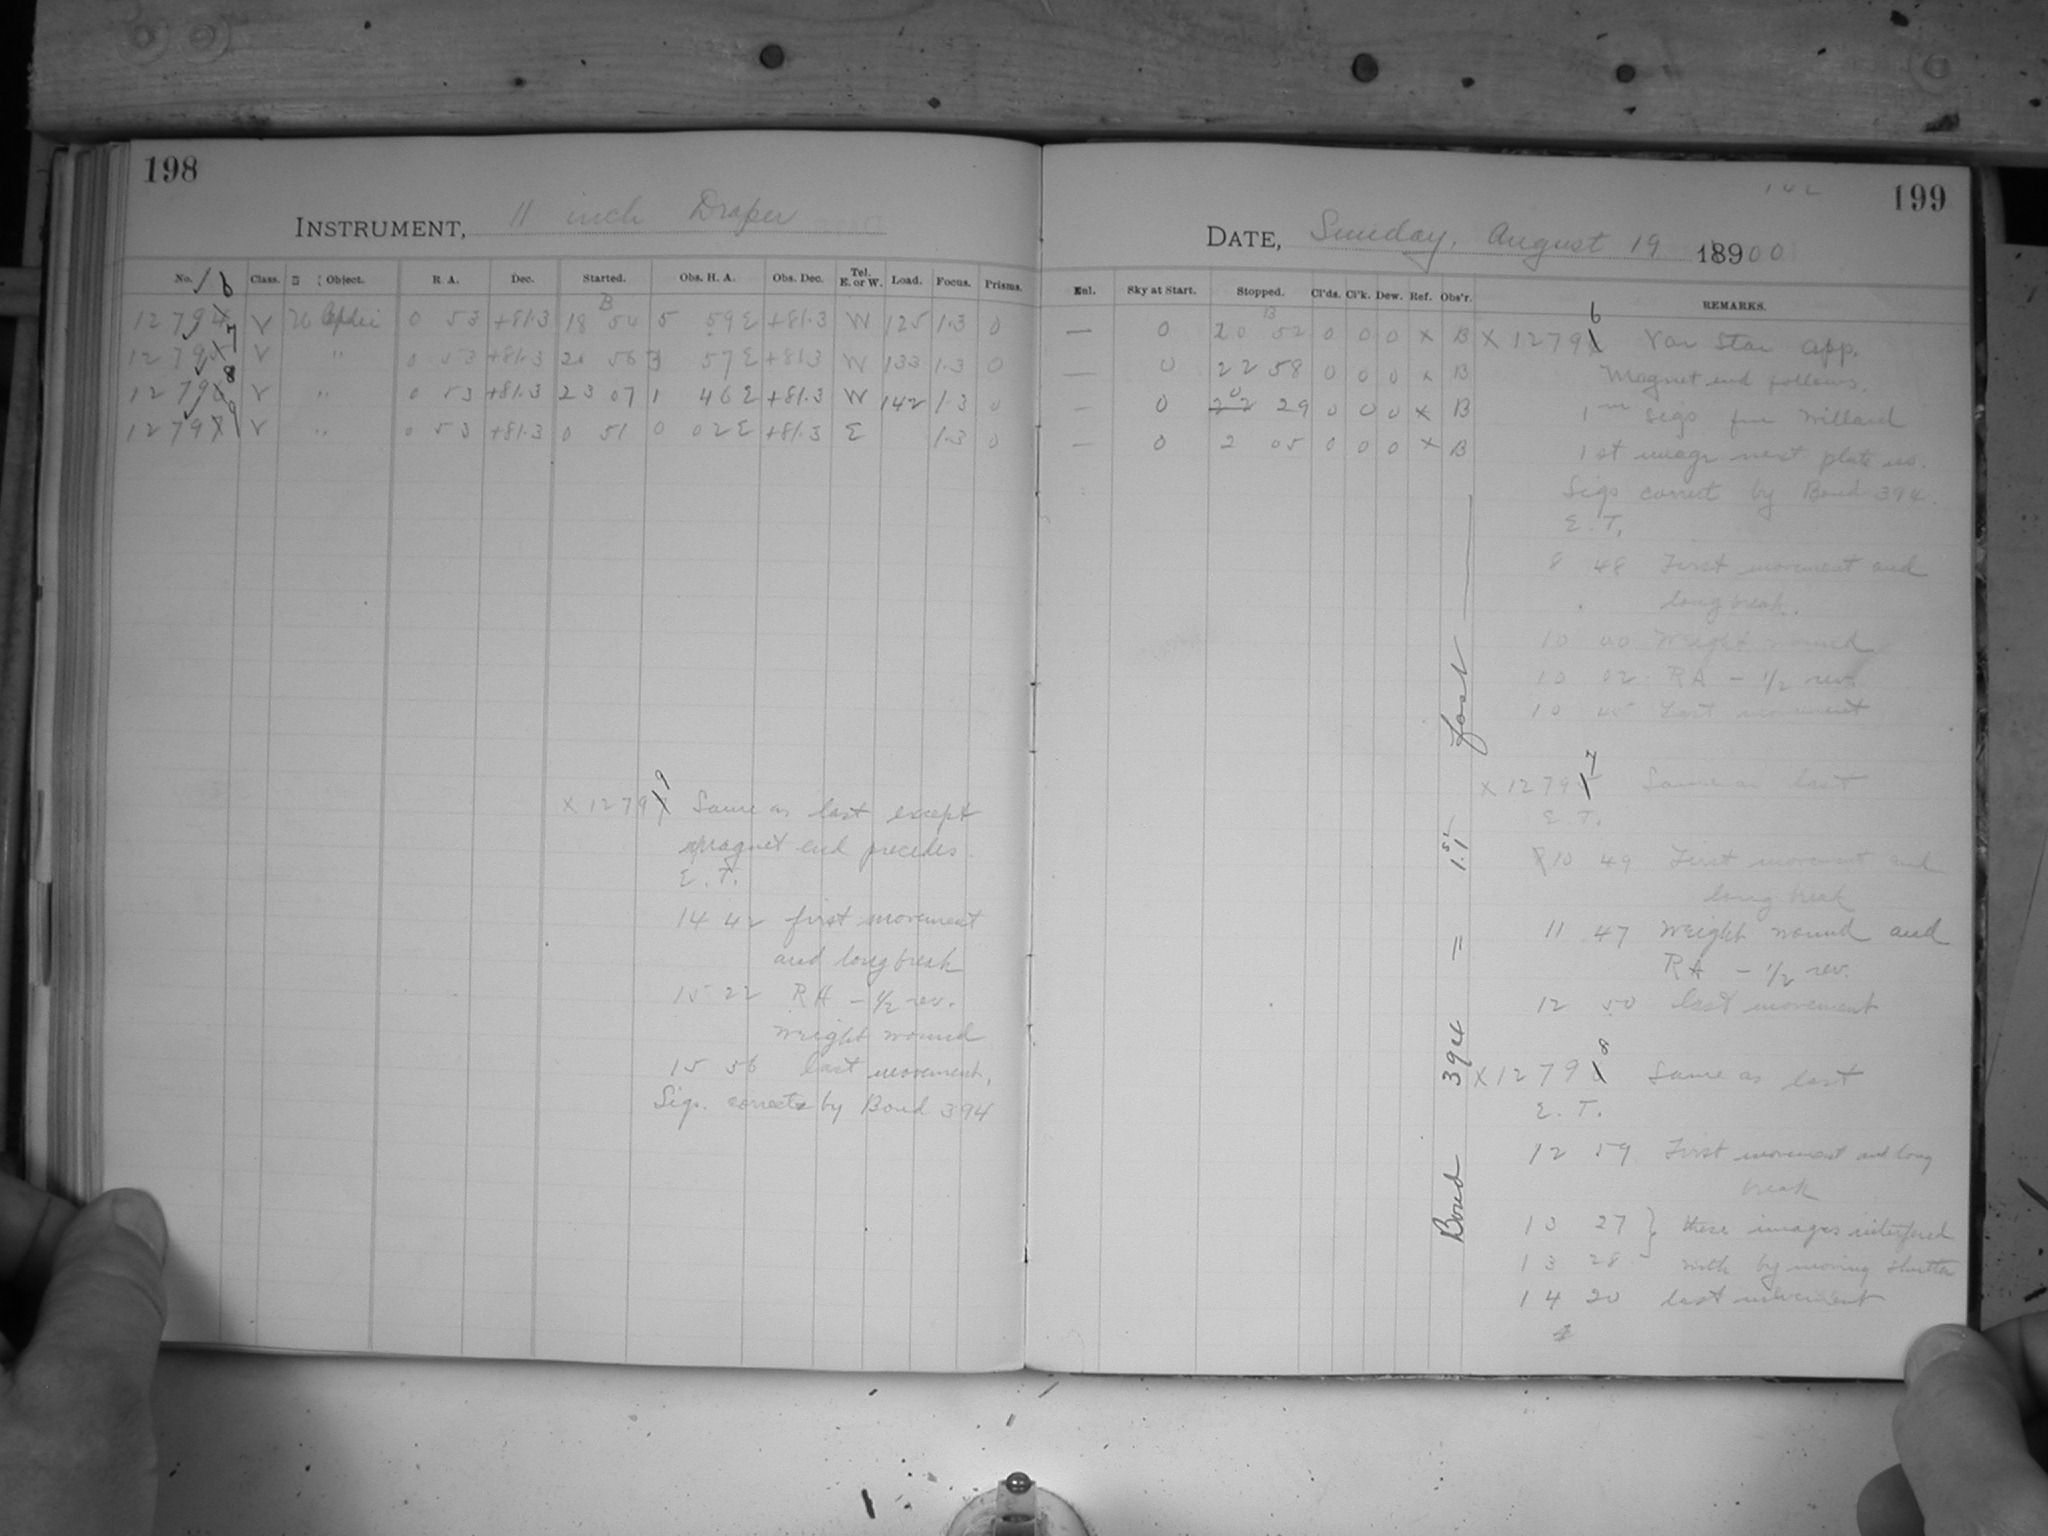 198
INSTRUMENT, 11 inch Draper
No. Class. Object. R. A. Dec. Started. Obs. H. A. Obs. Dec. Tel. E. or W. Load. Focus. Prisms.
6 B
12794 V U Cephei 0 53 +81.3 18 54 5 59 E +81.3 W 125 1.3 0
7
12795 V " 0 53 +81.3 20 56 3 57 E +81.3 W 133 1.3 0
8
12796 V " 0 53 +81.3 23 07 1 46 E +81.3 W 142 1.3 0
9
12797 V " 0 53 +81.3 0 51 0 02 E +81.3 E 1.3 0
9
X 12797 Same as last except
magnet end precedes.
E. T.
14 42 first movement
and long break
15 22 RA - 1/2 rev.
Weight wound
15 56 last movement,
Sigs. corrects by Bond 394
142
199
DATE, Sunday, August 19 1900
Enl. Sky at Start. Stopped. Cl'ds. Cl'k. Dew. Ref. Obs'r. REMARKS.
B
— 0 20 52 0 0 0 x B
— 0 22 58 0 0 0 x B
0
— 0 22 29 0 0 0 x B
— 0 2 05 0 0 0 x B
6
X 1279 Var Star app.
Magnet end follows.
1m sigs from Willard
1st image next plate no.
Sigs correct by Bond 394.
E. T.
8 48 First movement and
long break.
10 00 Weight wound
10 02 RA - 1/2 rev.
10 45 Last movement
7
X 12795 Same as last
E. T.
10 49 First movement and
long break
11 47 Weight wound and
RA - 1/2 rev.
12 50 last movement
8
X 1279 Same as last
E. T.
12 59 First movement and long
break
13 27 } these images interfered
13 28 with by moving shutter
14 20 last movement
Bond 394 = 1s.1 fast